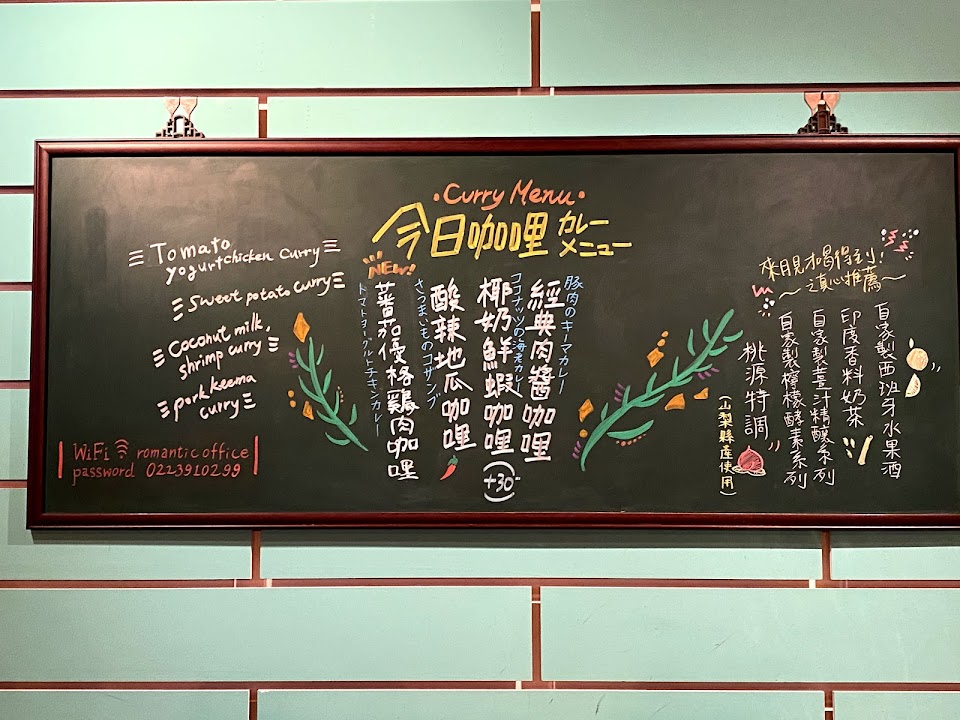 ·Curry Menu·
今日咖哩 カレー
メニュー
Tomato
yogurt chicken curry
Sweet potato curry
Coconut milk,
shrimp curry
pork keema
curry
WiFi romantic office
password 0223910299
豚肉のキーマカレー
經典肉醬咖哩
ココナッツの海老カレー
椰奶鮮蝦咖哩(+30)
さつまいものコサング
酸辣地瓜咖哩
NEW!
蕃茄優格鷄肉咖哩
トマトヨーグルトチキンカレー
來月見才喝得到!
~之真心推薦~
自家製西班牙水果酒
印度香料奶茶
自家製薑汁精釀系列
自家製檸檬酵素系列
桃源特調
(山梨縣產使用)